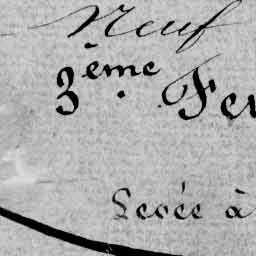 Neuf
3ème Fe
Levée à